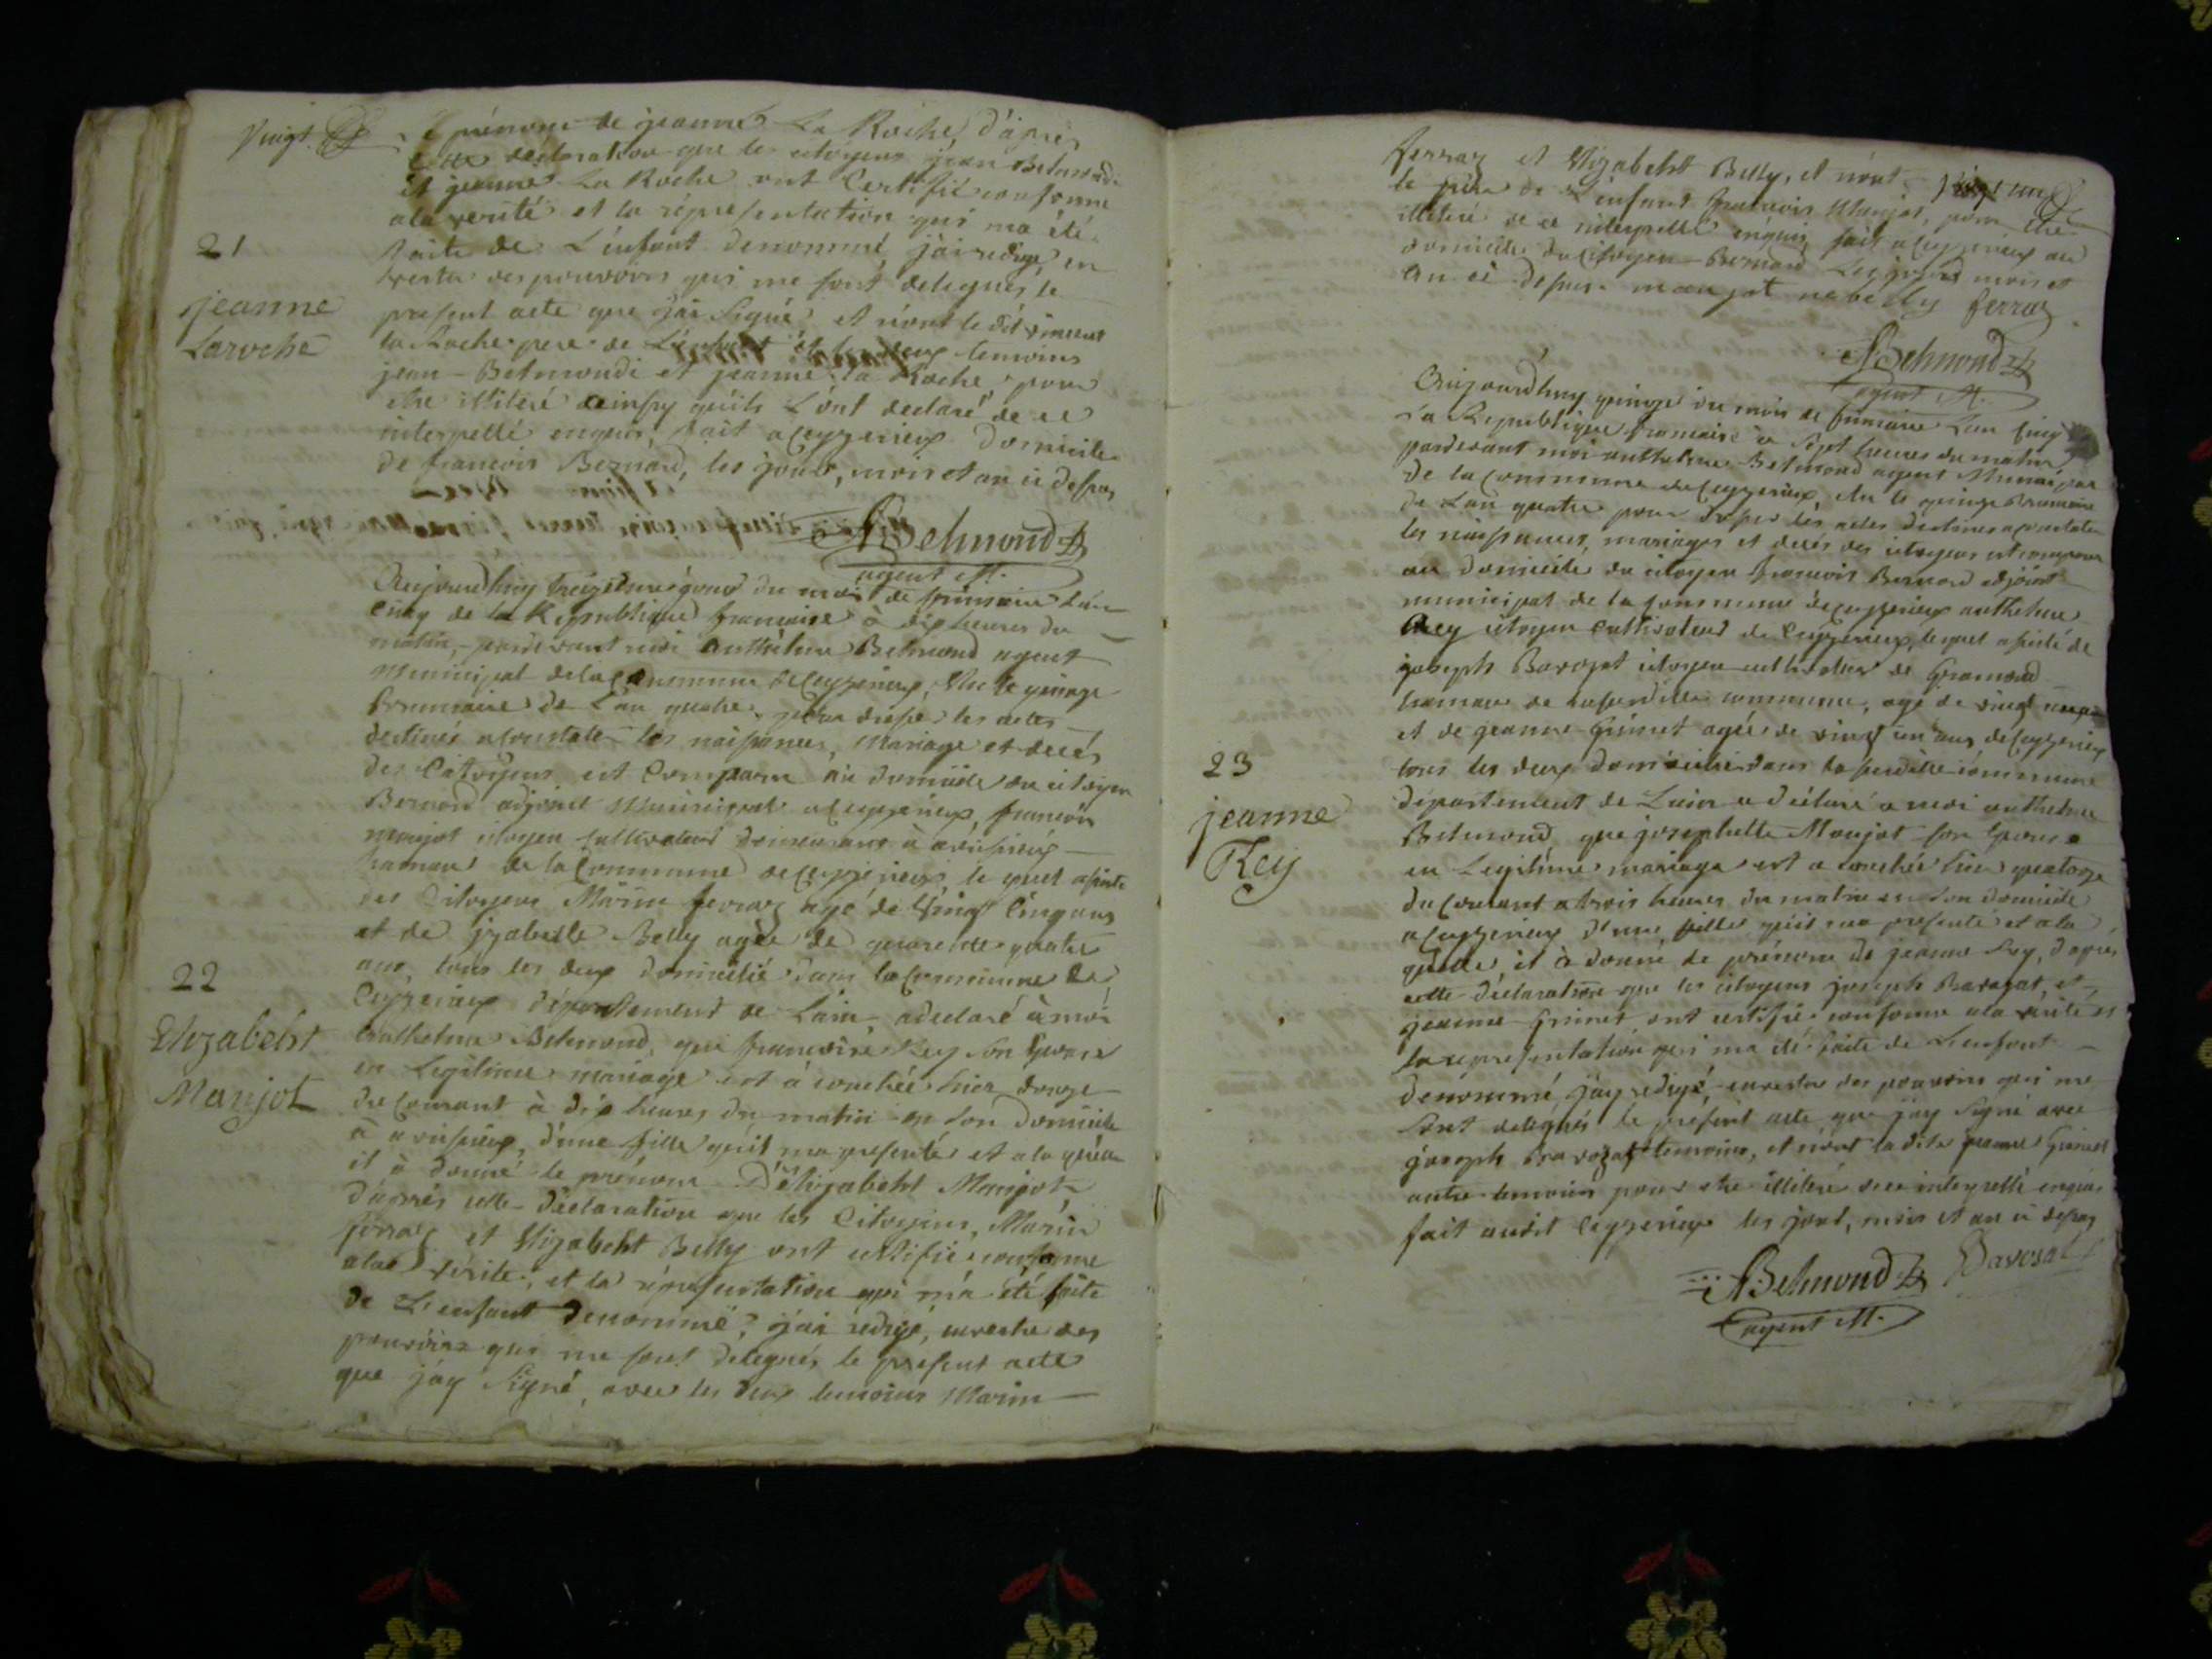 Vingt
le prénom de jeanne La Roche, d'après
cette declaration que les citoyens jean Belmondi
et jeanne La Roche ont Certifié conforme
a la verité et la répresentation qui ma été
faite de L'enfant denommé, jai redigé en
vertu des pouvoirs qui me sont delegués le
present acte que j'ai Signé et n'ont le dit vincent
la Roche pere de L'enfant et les deux temoins
jean Belmondi et jeanne la Roche, pour
etre illiteré ainsy qu'ils L'ont declaré de ce
interpellé enquis, fait a Ceyzerieux Domicile
de francois Bernard, les jours, mois et an ci dessus
ABelmond
agent M.
21
jeanne
Laroche
Aujourd'huy treizieme jour du mois de frimaire L'an
cinq de la Republique francaise à dix heures du
matin, pardevant moi Anthelme Belmond agent
Municipal de la Commune de Ceyzerieux, élu le quinze
Brumaire de L'an quatre, pour dresser les actes
destinés a constater les naissances, mariage et decés
des Citoyens est Comparu au domicile du citoyen
Bernard adjoint Municipal a Ceyzerieux, francois
maujot citoyen cultivateur demeurant à avrissieux
hameau de la Commune de Ceyzerieux le quel assisté
des Citoyens Marin ferraz agé de Vingt Cinq ans
et de jzabelle Belly agée de quarente quatre
ans, tous les deux domicilié dans la Commune de
Ceyzerieux département de L'ain, a declaré à moi
Anthelme Belmond, que francoise Rey son Epouse
en Legitime mariage est à couchée hier douze
du Courant à dix heures du matin en son domicile
à avrissieux, d'une fille qu'il ma presenté et a la quelle
il à donné le prénom D'Elizabeht Maujot
d'après cette déclaration que les Citoyens, Marin
ferraz et Elizabeht Belly ont certifié conforme
a la vérité, et la répresentation qui m'a été faite
de L'enfant denommé, j'ai redigé, en vertu des
pouvoirs qui me sont delegués le présent acte
que j'ay Signé, avec les deux temoins Marin
22
Elizabeht
Maujot
Vingt un
ferraz et Elizabeht Belly, et n'ont
le père de L'enfant francois Maujot, pour être
illiteré de ce interpellé enquis, fait a Ceyzerieux au
domicile du Citoyen Bernard Les jours mois et
an ci dessus. maujot nebelly ferraz
ABelmond
agent M.
Aujourd'huy quinze du mois de frimaire L'an cinq
la Republique francaise a Sept heures du matin
pardevant moi anthelme Belmond agent Municipal
de la Commune de Ceyzerieux, élu le quinze Brumaire
de L'an quatre pour dresser les actes destinés a constater
les naissances, mariages et decés des citoyens est comparu
au domicile du citoyen francois Bernard adjoint
municipal de la Commune de Ceyzerieux anthelme
Rey citoyen cultivateur de Ceyzerieux, le quel assisté de
joseph Barozat citoyen cultivateur de Gramond
hameau de la susditte commune, agé de vingt neuf
et de jeanne Grinet agée de vingt un ans de Ceyzerieux
tous les deux domicilié dans la susditte commune
département de L'ain a déclaré a moi anthelme
Belmond que josephette Maujot son Epouse
en Legitime mariage est a couchée hier quatorze
du Courant a trois heures du matin en son domicile
a Ceyzerieux d'une fille qu'il ma presenté et a la
quelle, il à donné le prénom de jeanne Rey, d'après
cette déclaration que les citoyens joseph Barozat, et
jeanne Grinet ont certifié conforme a la vérité et
la representation qui ma été faite de L'enfant
denommé j'ay redigé, en vertu des pouvoirs qui me
sont delegués le present acte que j'ay Signé avec
joseph Barozat temoins, et n'ont la dite jeanne Grinet
autre temoin pour etre illiteré de ce interpellé enquis
fait audit Ceyzerieux les jour, mois et an ci dessus
ABelmond Barosat
agent M.
23
jeanne
Rey